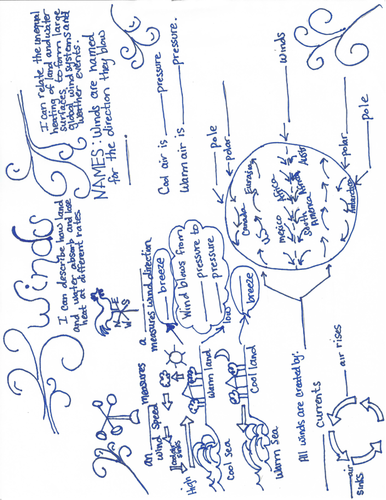 Winds
I can describe how land
and water absorb and lose
heat at different rates
I can relate the unequal
heating of land and water
surfaces to form large
global wind systems and
weather events.
NAMES: Winds are named
for the direction they blow
N
W E
S
an measures
wind speed
a
measures wind direction
Cool air is pressure
Warm air is pressure.
sinks
High
warm land
Cool sea
breeze
Wind blows from
pressure to
pressure
low
Cool land
Warm sea
breeze
pole
polar
winds
Canada
Europe
mexico
Africa
South
America
Antarctica
polar
pole
All winds are created by:
currents
air rises
air
sinks